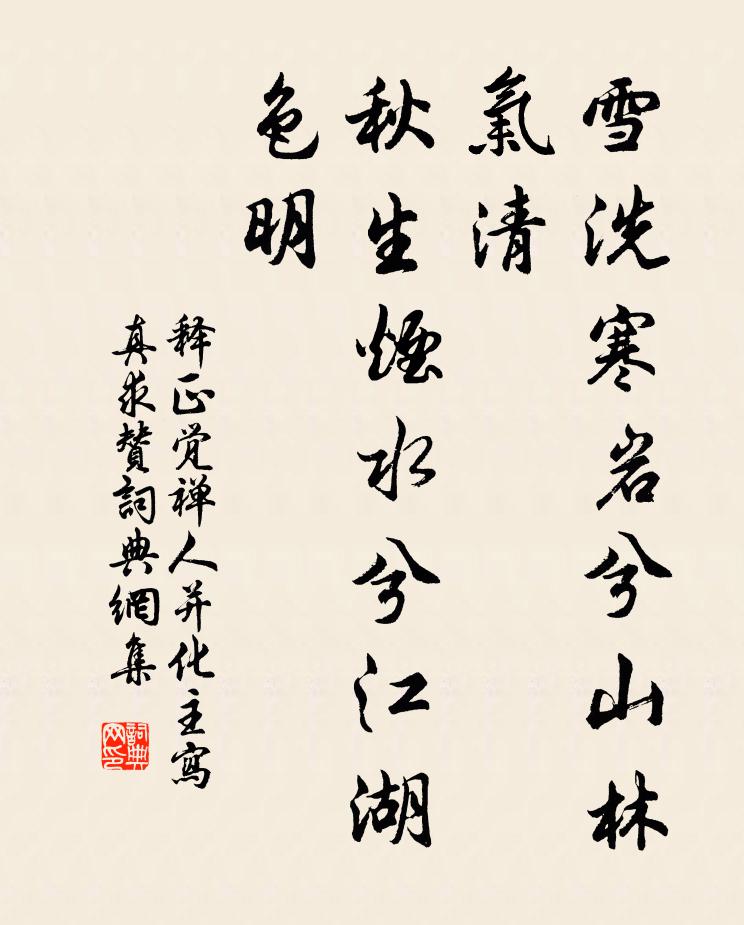 雪洗寒岩兮山林
氣清
秋生煙水兮江湖
色明
释正觉禅人并化主寫
真求贊詞典網集
詞典
网印